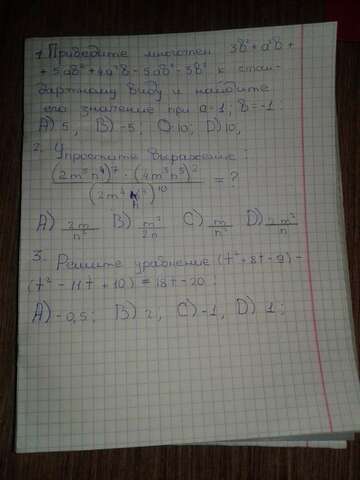 1. Приведите многочлен 3b² + a²b +
+ 5ab² + 4a²b - 5ab² - 3b² к стан-
дартному виду и найдите
его значение при a = 1; b = -1;
A) 5, B) -5; C) 10; D) 10;
2. Упростите выражение:
(2m⁵n⁴)⁷ · (4m³n⁵)²
= ?
A) 2m/n² B) m²/2n C) m/n² D)
3. Решите уравнение (t² + 8t - 9) -
(t² - 11t + 10) = 18t - 20:
A) -0,5; B) 2, C) -1, D) 1;